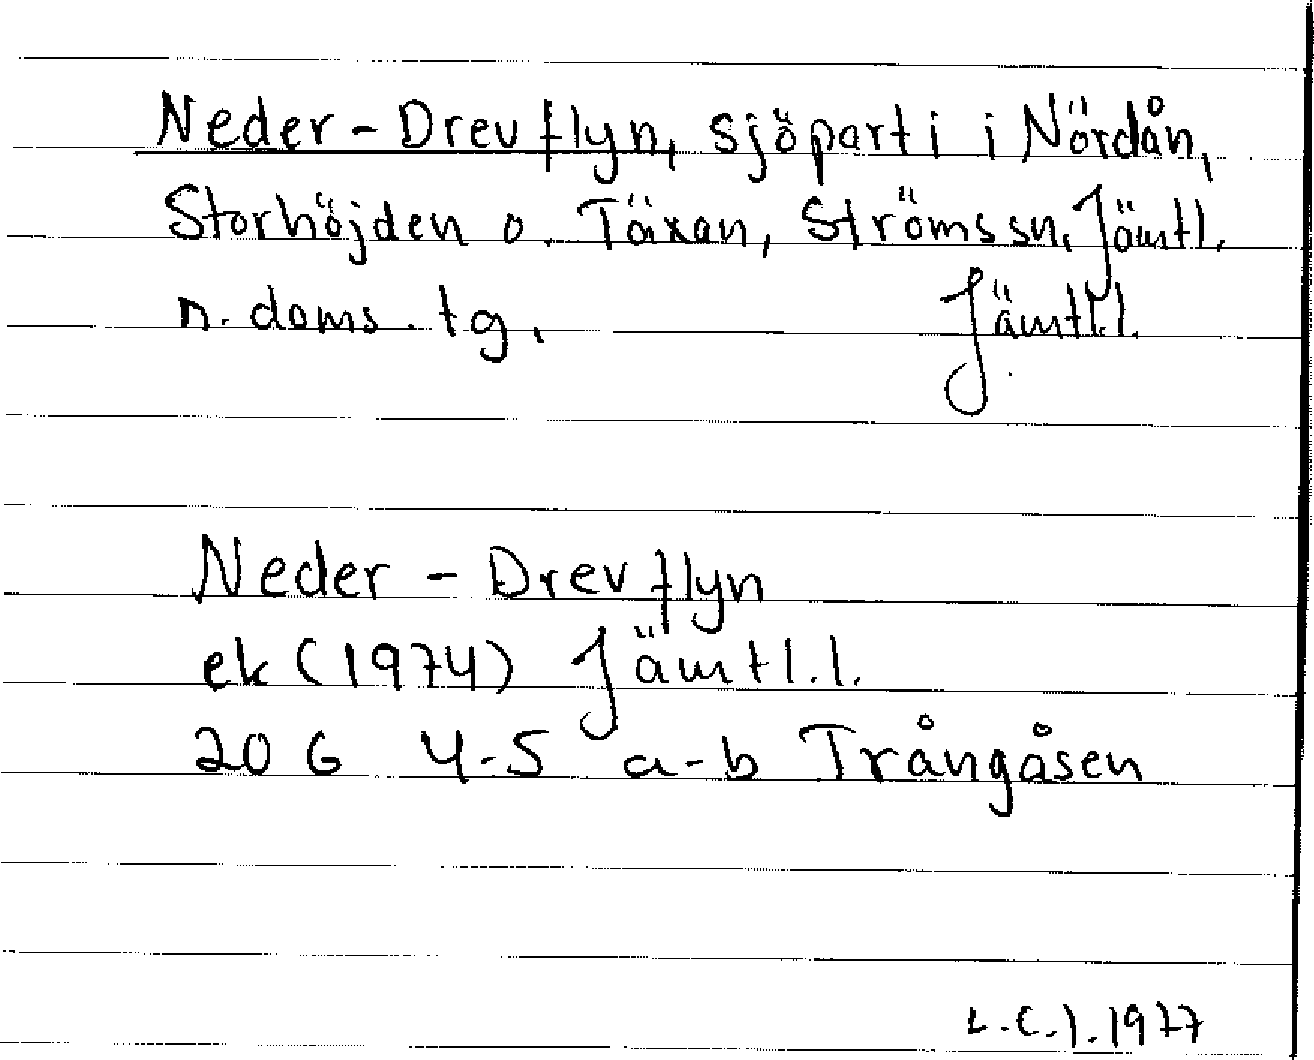 Neder-Drevflyn, sjöparti i Nördån,
Storhöjden o. Täxan, Strömssn, Jämtl.
n. doms. tg. Jämtl.l.
Neder-Drevflyn
ek (1974) Jämtl.l.
20 G 4-5 a-b Trångåsen
L.C.J. 1977